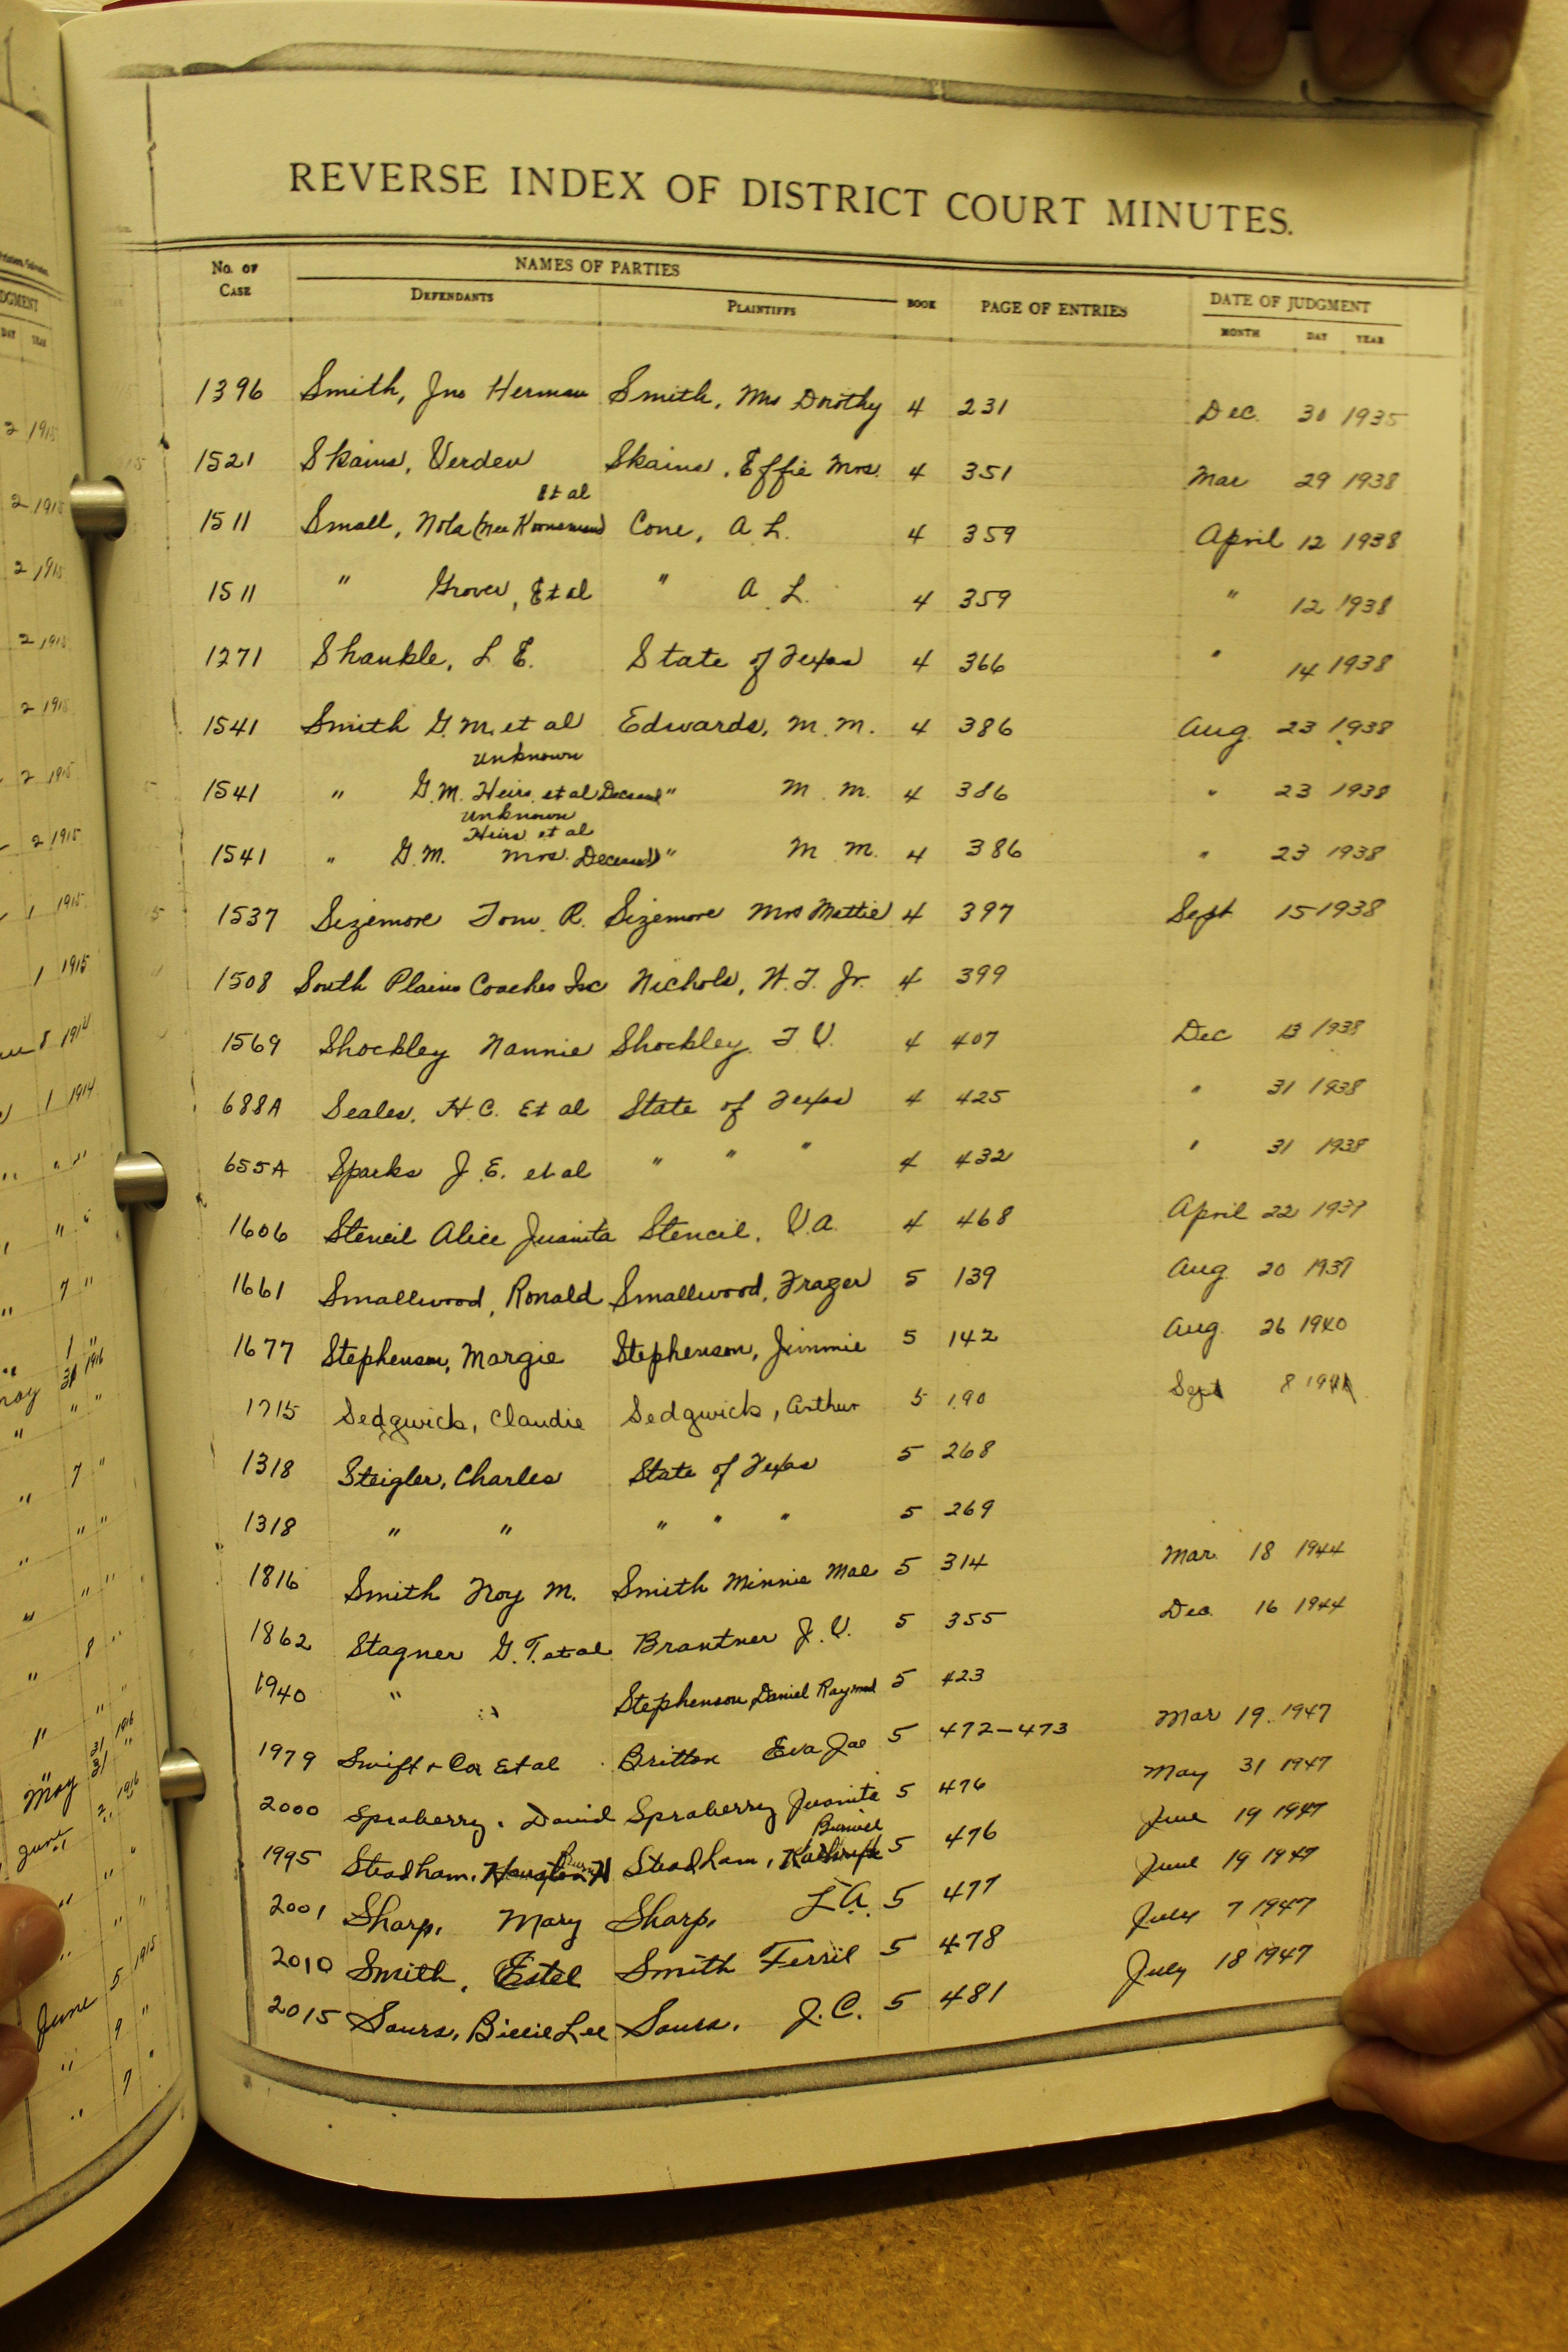 REVERSE INDEX OF DISTRICT COURT MINUTES.
No. of Case NAMES OF PARTIES BOOK PAGE OF ENTRIES DATE OF JUDGMENT
Defendants Plaintiffs MONTH DAY YEAR
1396 Smith, Jno Herman Smith, Mrs Dorothy 4 231 Dec. 30 1935
1521 Skains, Verden Skains, Effie Mrs. 4 351 Mar 29 1938
Et al
1511 Small, Nola (Nee Cone, A L. 4 359 April 12 1938
1511 " Grover, Et al " A L. 4 359 " 12 1938
1271 Shankle, L E. State of Texas 4 366 " 14 1938
1541 Smith G.M. et al Edwards, M. M. 4 386 Aug. 23 1938
Unknown
1541 " G.M. Heirs et al Deceased " M. M. 4 386 " 23 1938
Unknown
Heirs et al
1541 " G.M. Mrs. Deceased) " M M. 4 386 " 23 1938
1537 Sizemore Tom R. Sizemore Mrs Mattie 4 397 Sept 15 1938
1508 South Plains Coaches Inc Nichols, W. T. Jr. 4 399
1569 Shockley Nannie Shockley T V. 4 407 Dec 13 1938
688A Seales, H C. Et al State of Texas 4 425 " 31 1938
655A Sparks J. E. et al " " " 4 432 " 31 1938
1606 Stencil Alice Juanita Stencil, V.A. 4 468 April 22 1939
1661 Smallwood, Ronald Smallwood, Frazer 5 139 Aug 20 1939
1677 Stephenson, Margie Stephenson, Jimmie 5 142 Aug. 26 1940
1715 Sedgwick, Claudie Sedgwick, Arthur 5 190 Sept 8 1941
1318 Steigler, Charles State of Texas 5 268
1318 " " " " " 5 269
1816 Smith Troy M. Smith Minnie Mae 5 314 Mar. 18 1944
1862 Stagner G. T. et al Brantner J. V. 5 355 Dec. 16 1944
1940 " " Stephenson Daniel Raymond 5 423
1979 Swift & Co Et al Britton Eva Jae 5 472-473 Mar 19 1947
2000 Spraberry, David Spraberry Juanita 5 476 May 31 1947
1995 Steadham, Steadham, 5 476 June 19 1947
2001 Sharp, Mary Sharp, L A. 5 477 June 19 1947
2010 Smith, Estel Smith Ferril 5 478 July 7 1947
2015 Sours, Billie Lee Sours, J. C. 5 481 July 18 1947